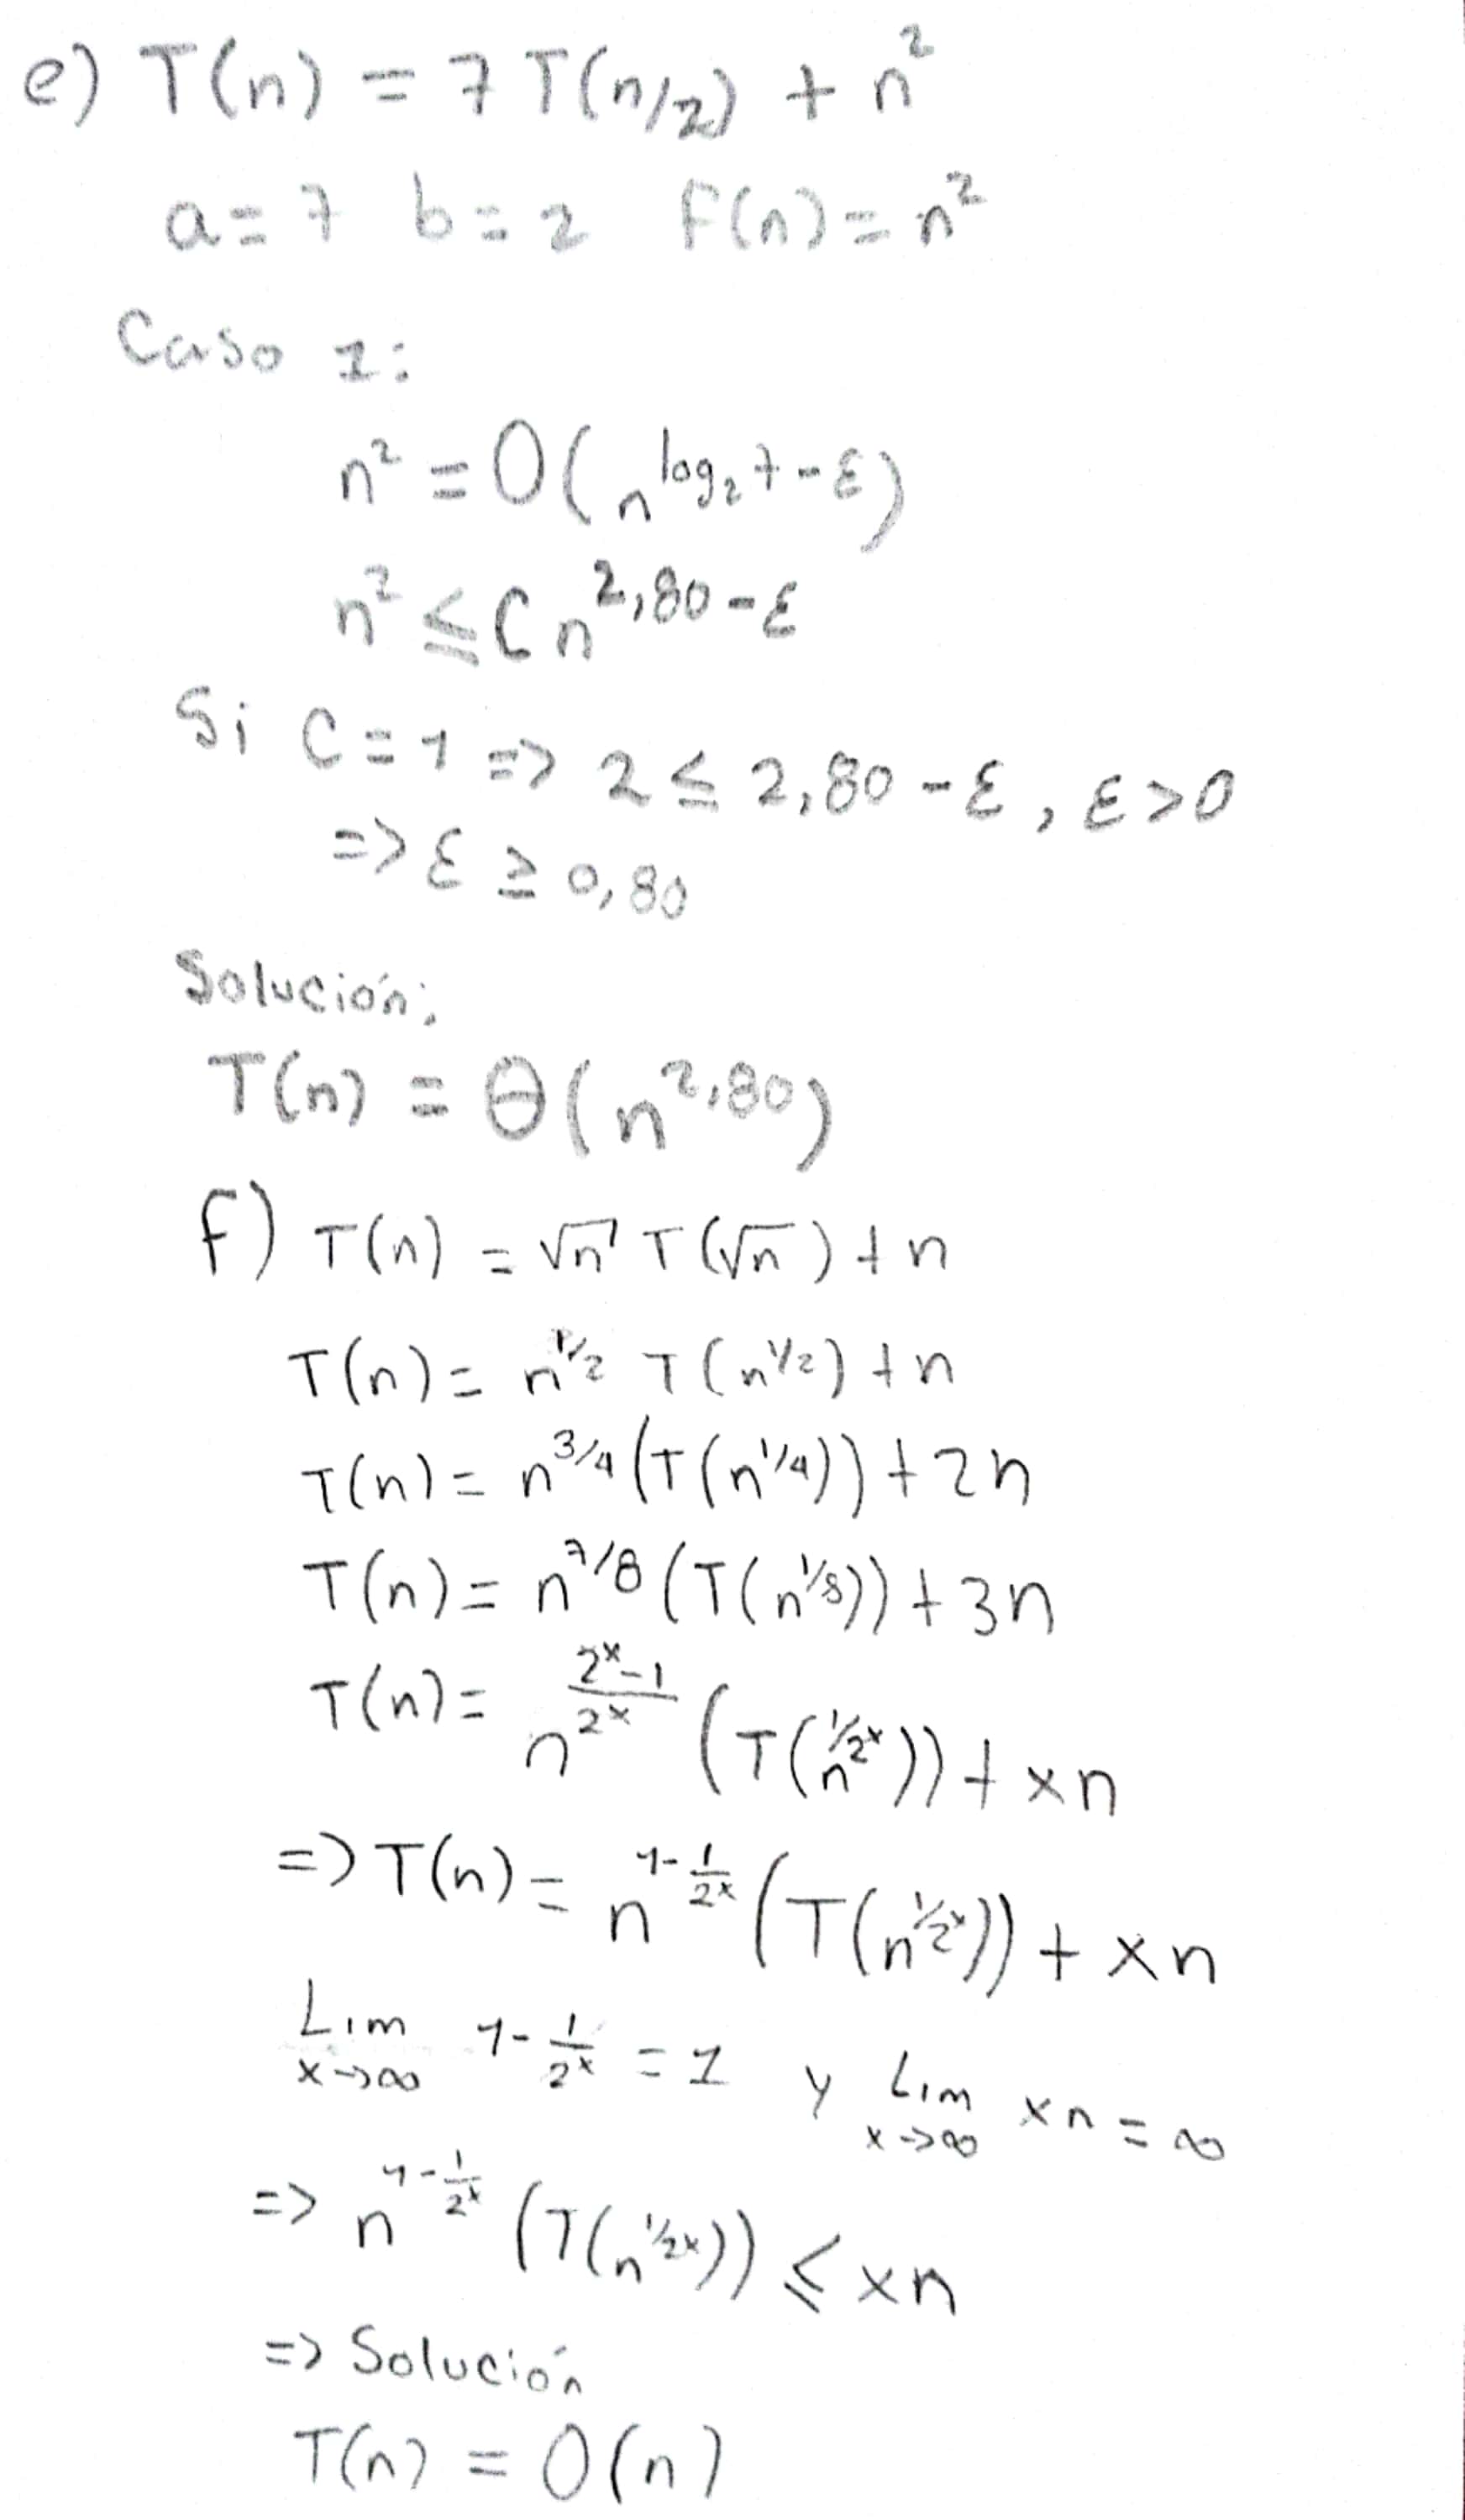 e) T(n) = 7 T(n/2) + n²
a = 7 b = 2 F(n) = n²
Caso 1:
n² = O(n^(log₂7 - ε))
n² ≤ C n^(2,80 - ε)
Si C = 1 => 2 ≤ 2,80 - ε, ε > 0
=> ε ≥ 0,80
Solución:
T(n) = Θ(n^(2,80))
F) T(n) = √n T(√n) + n
T(n) = n^(1/2) T(n^(1/2)) + n
T(n) = n^(3/4) (T(n^(1/4))) + 2n
T(n) = n^(7/8) (T(n^(1/8))) + 3n
T(n) = n^((2^x - 1)/2^x) (T(n^(1/2^x))) + xn
=> T(n) = n^(1 - 1/2^x) (T(n^(1/2^x))) + xn
Lim x->∞ 1 - 1/2^x = 1 y Lim x->∞ xn = ∞
=> n^(1 - 1/2^x) (T(n^(1/2^x))) ≤ xn
=> Solución
T(n) = O(n)